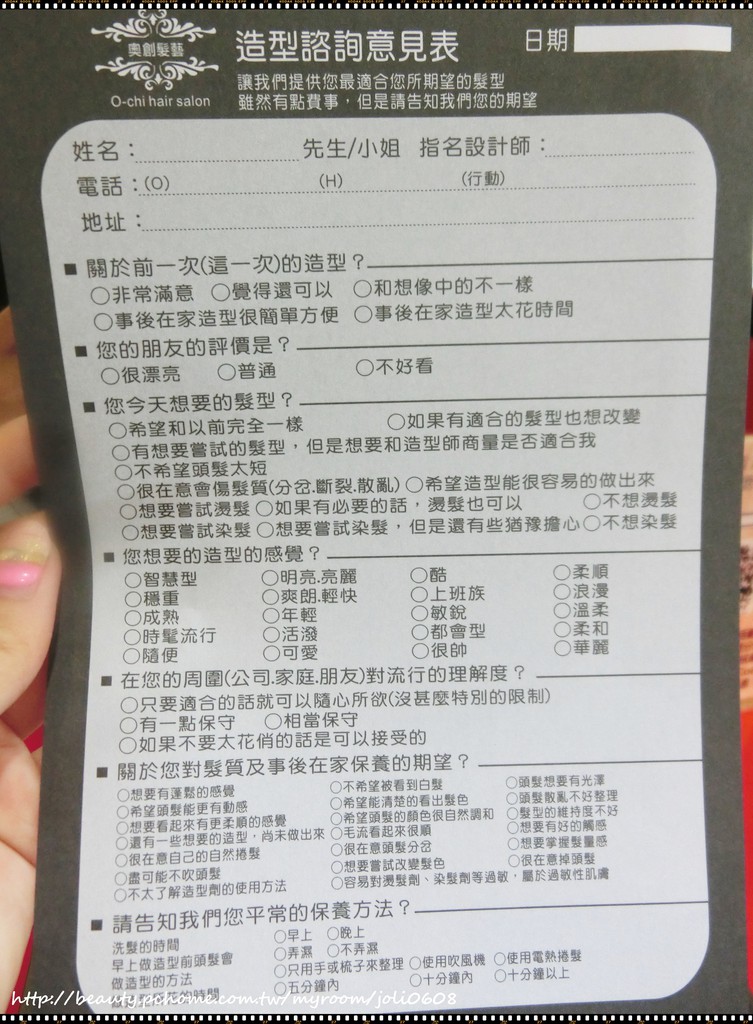 奧創髮藝
O-chi hair salon
造型諮詢意見表 日期
讓我們提供您最適合您所期望的髮型
雖然有點費事，但是請告知我們您的期望
姓名： 先生/小姐 指名設計師：
電話：(O) (H) (行動)
地址：
■ 關於前一次(這一次)的造型？
○非常滿意 ○覺得還可以 ○和想像中的不一樣
○事後在家造型很簡單方便 ○事後在家造型太花時間
■ 您的朋友的評價是？
○很漂亮 ○普通 ○不好看
■ 您今天想要的髮型？
○希望和以前完全一樣 ○如果有適合的髮型也想改變
○有想要嘗試的髮型，但是想要和造型師商量是否適合我
○不希望頭髮太短
○很在意會傷髮質(分岔.斷裂.散亂) ○希望造型能很容易的做出來
○想要嘗試燙髮 ○如果有必要的話，燙髮也可以 ○不想燙髮
○想要嘗試染髮 ○想要嘗試染髮，但是還有些猶豫擔心 ○不想染髮
■ 您想要的造型的感覺？
○智慧型 ○明亮.亮麗 ○酷 ○柔順
○穩重 ○爽朗.輕快 ○上班族 ○浪漫
○成熟 ○年輕 ○敏銳 ○溫柔
○時髦流行 ○活潑 ○都會型 ○柔和
○隨便 ○可愛 ○很帥 ○華麗
■ 在您的周圍(公司.家庭.朋友)對流行的理解度？
○只要適合的話就可以隨心所欲(沒甚麼特別的限制)
○有一點保守 ○相當保守
○如果不要太花俏的話是可以接受的
■ 關於您對髮質及事後在家保養的期望？
○想要有蓬鬆的感覺 ○不希望被看到白髮 ○頭髮想要有光澤
○希望頭髮能更有動感 ○希望能清楚的看出髮色 ○頭髮散亂不好整理
○想要看起來有更柔順的感覺 ○希望頭髮的顏色很自然調和 ○髮型的維持度不好
○還有一些想要的造型，尚未做出來 ○毛流看起來很順 ○想要有好的觸感
○很在意自己的自然捲髮 ○很在意頭髮分岔 ○想要掌握髮量感
○盡可能不吹頭髮 ○想要嘗試改變髮色 ○很在意掉頭髮
○不太了解造型劑的使用方法 ○容易對燙髮劑、染髮劑等過敏，屬於過敏性肌膚
■ 請告知我們您平常的保養方法？
洗髮的時間 ○早上 ○晚上
早上做造型前頭髮會 ○弄濕 ○不弄濕
做造型的方法 ○只用手或梳子來整理 ○使用吹風機 ○使用電熱捲髮
花的時間 ○五分鐘內 ○十分鐘內 ○十分鐘以上
http://beauty.pchome.com.tw/myroom/joli0608